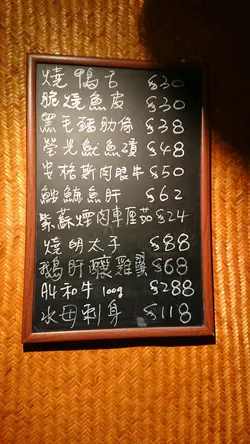 燒鴨舌 $30
脆燒魚皮 $30
黑毛豬肋條 $38
螢光魷魚漬 $48
安格斯肉眼牛 $50
鮟鱇魚肝 $62
紫蘇煙肉車厘茄 $24
燒明太子 $88
鵝肝釀雞翼 $68
A4和牛 100g $288
水母刺身 $118